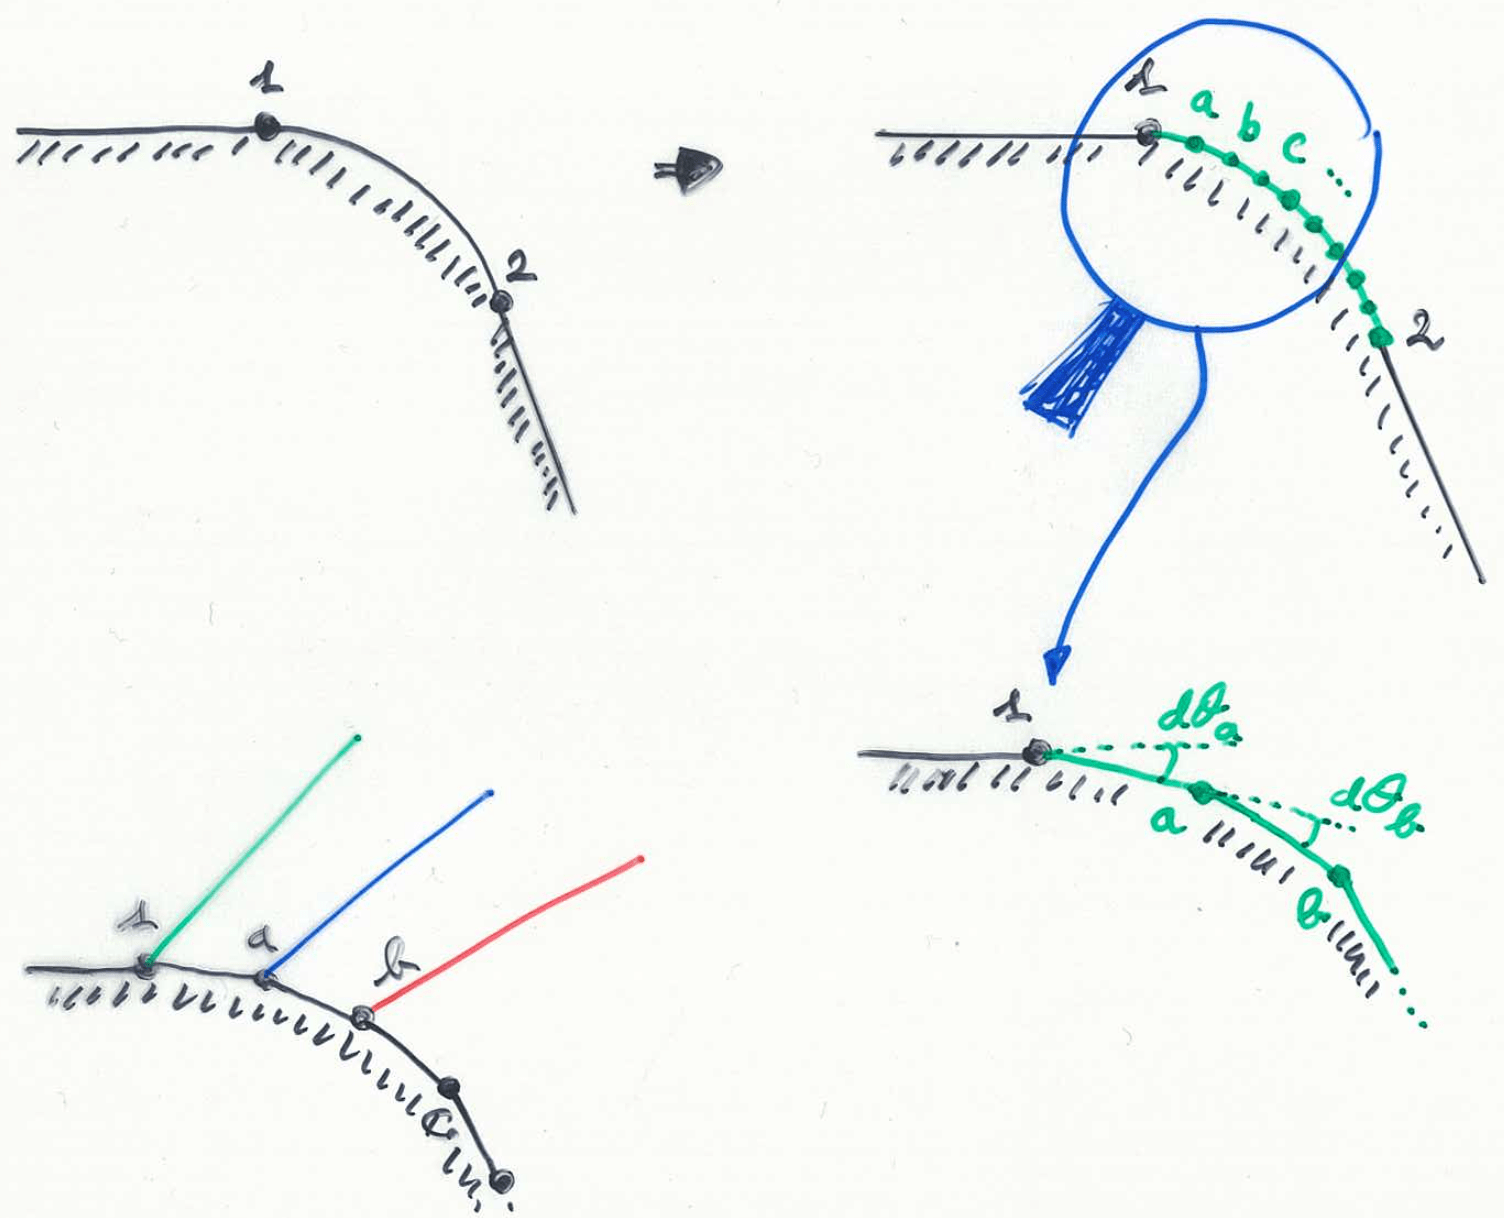 1
2
1
a b c ...
2
1
dθa
a
dθb
b
1
a
b
c